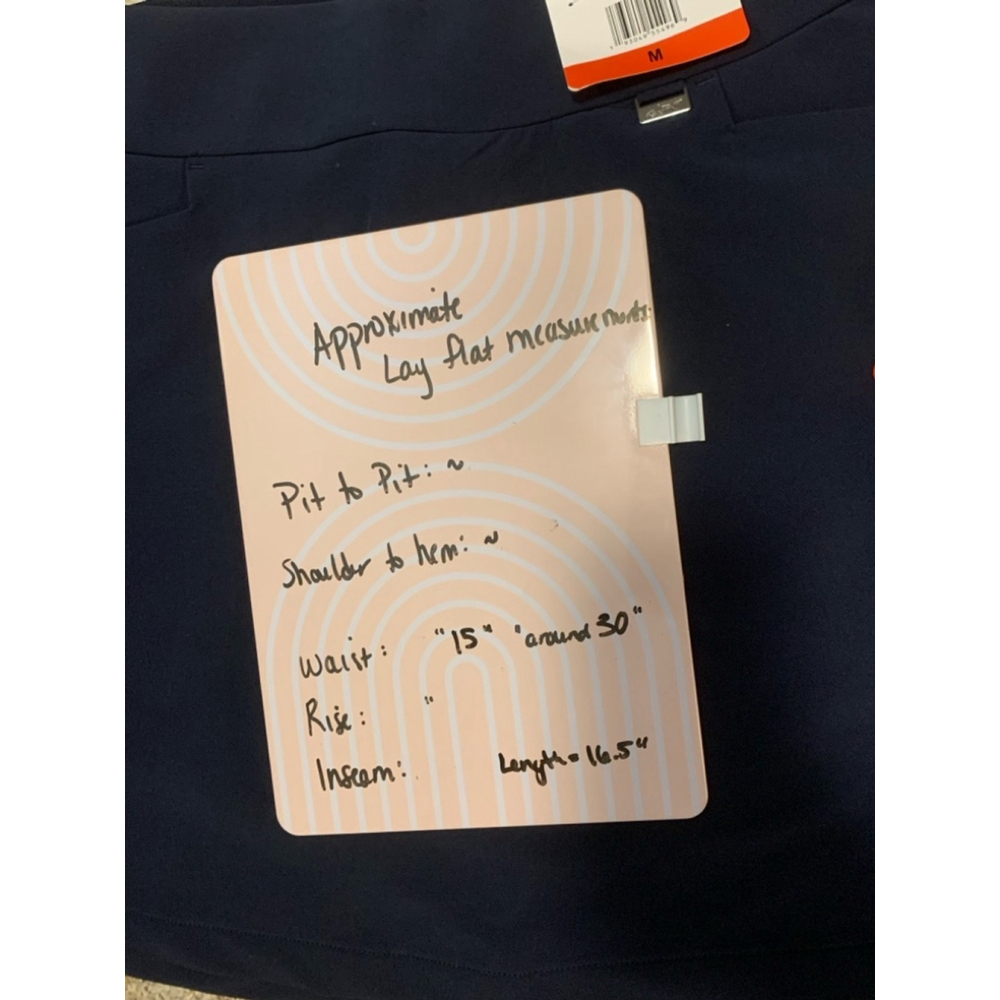 M
Approximate
Lay flat measurements:
Pit to Pit: ~
Shoulder to hem: ~
Waist: "15" "around 30"
Rise: "
Inseam: Length = 16.5"